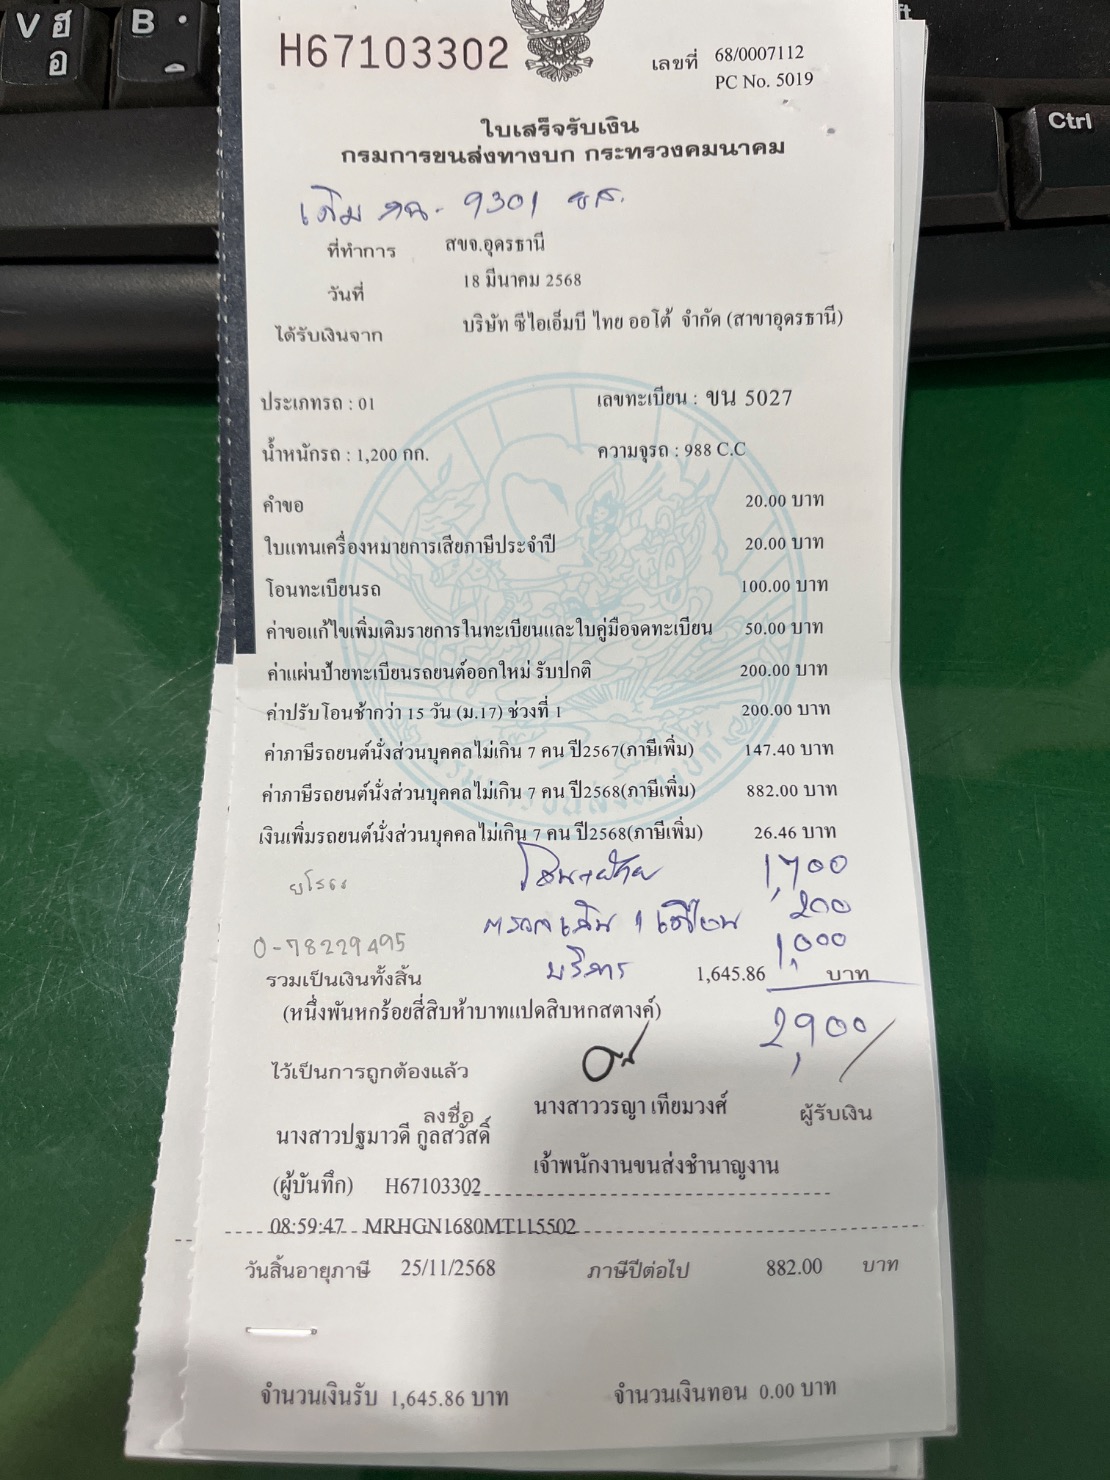 V ฮ อ
B
ft
Ctrl
H67103302
เลขที่ 68/0007112
PC No. 5019
ใบเสร็จรับเงิน
กรมการขนส่งทางบก กระทรวงคมนาคม
เดิม 9301
ที่ทำการ สขจ.อุดรธานี
วันที่ 18 มีนาคม 2568
ได้รับเงินจาก บริษัท ซีไอเอ็มบี ไทย ออโต้ จำกัด (สาขาอุดรธานี)
ประเภทรถ : 01 เลขทะเบียน : ขน 5027
น้ำหนักรถ : 1,200 กก. ความจุรถ : 988 C.C
คำขอ 20.00 บาท
ใบแทนเครื่องหมายการเสียภาษีประจำปี 20.00 บาท
โอนทะเบียนรถ 100.00 บาท
ค่าขอแก้ไขเพิ่มเติมรายการในทะเบียนและใบคู่มือจดทะเบียน 50.00 บาท
ค่าแผ่นป้ายทะเบียนรถยนต์ออกใหม่ รับปกติ 200.00 บาท
ค่าปรับโอนช้ากว่า 15 วัน (ม.17) ช่วงที่ 1 200.00 บาท
ค่าภาษีรถยนต์นั่งส่วนบุคคลไม่เกิน 7 คน ปี2567(ภาษีเพิ่ม) 147.40 บาท
ค่าภาษีรถยนต์นั่งส่วนบุคคลไม่เกิน 7 คน ปี2568(ภาษีเพิ่ม) 882.00 บาท
เงินเพิ่มรถยนต์นั่งส่วนบุคคลไม่เกิน 7 คน ปี2568(ภาษีเพิ่ม) 26.46 บาท
โอน+ย้าย 1,700
ยโสธร
ตรวจเกิน 1 เดือน 200
0-78229495
บริการ 1,000
รวมเป็นเงินทั้งสิ้น 1,645.86 บาท
(หนึ่งพันหกร้อยสี่สิบห้าบาทแปดสิบหกสตางค์)
2,900/
ไว้เป็นการถูกต้องแล้ว
ลงชื่อ นางสาววรญา เทียมวงศ์ ผู้รับเงิน
นางสาวปฐมาวดี กูลสวัสดิ์
เจ้าพนักงานขนส่งชำนาญงาน
(ผู้บันทึก) H67103302
08:59:47 MRHGN1680MT115502
วันสิ้นอายุภาษี 25/11/2568 ภาษีปีต่อไป 882.00 บาท
จำนวนเงินรับ 1,645.86 บาท จำนวนเงินทอน 0.00 บาท